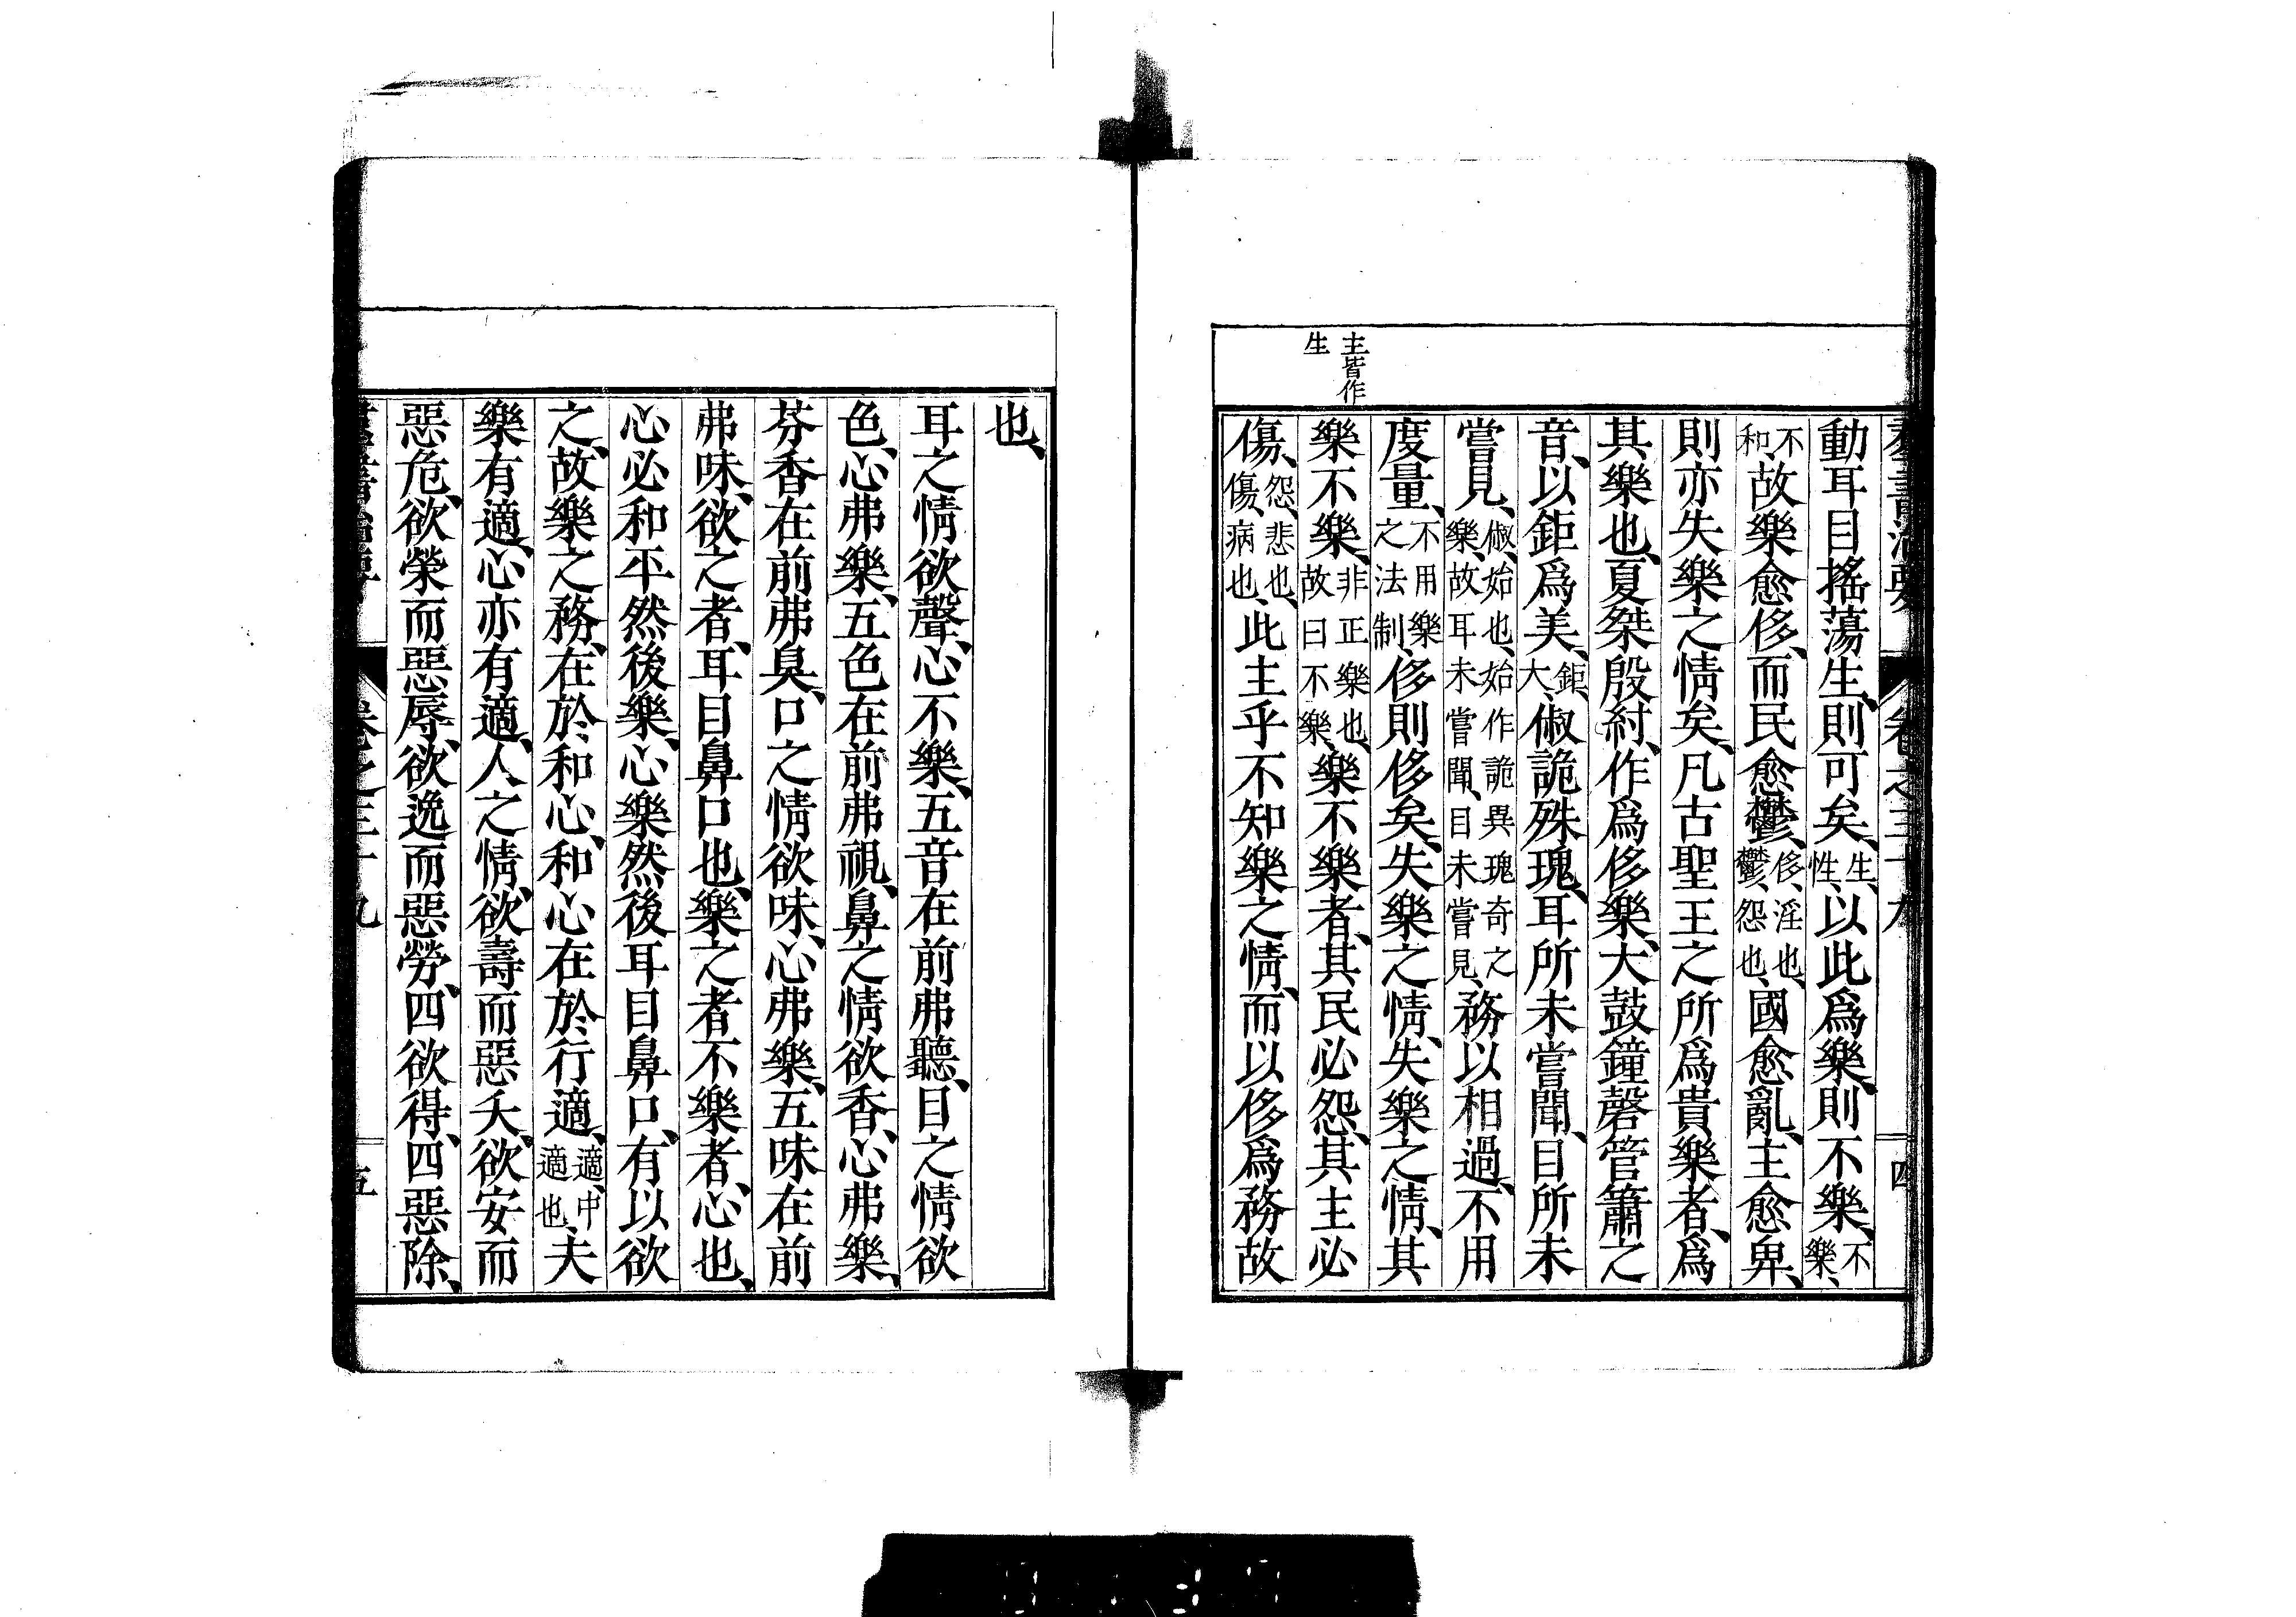 主皆作
生
動耳目搖蕩生、則可矣、生、性、以此爲樂、則不樂、不樂、
不和、故樂愈侈、而民愈鬱、侈、淫也、鬱、怨也、國愈亂、主愈卑、
則亦失樂之情矣、凡古聖王之所爲貴樂者、爲
其樂也、夏桀殷紂、作爲侈樂、大鼓鐘磬管簫之
音、以鉅爲美、鉅、大、俶詭殊瑰、耳所未嘗聞、目所未
嘗見、俶、始也、始作詭異瑰奇之樂、故耳未嘗聞、目未嘗見、務以相過、不用
度量、不用樂之法制、侈則侈矣、失樂之情、失樂之情、其
樂不樂、非正樂也、故曰不樂、樂不樂者、其民必怨、其主必
傷、怨、悲也、傷、病也、此主乎不知樂之情、而以侈爲務故
也、
耳之情欲聲、心不樂、五音在前弗聽、目之情欲
色、心弗樂、五色在前弗視、鼻之情欲香、心弗樂、
芬香在前弗臭、口之情欲味、心弗樂、五味在前
弗味、欲之者、耳目鼻口也、樂之者不樂者、心也、
心必和平然後樂、心樂然後耳目鼻口、有以欲
之、故樂之務、在於和心、和心在於行適、適、中適也、夫
樂有適、心亦有適、人之情、欲壽而惡夭、欲安而
惡危、欲榮而惡辱、欲逸而惡勞、四欲得、四惡除、